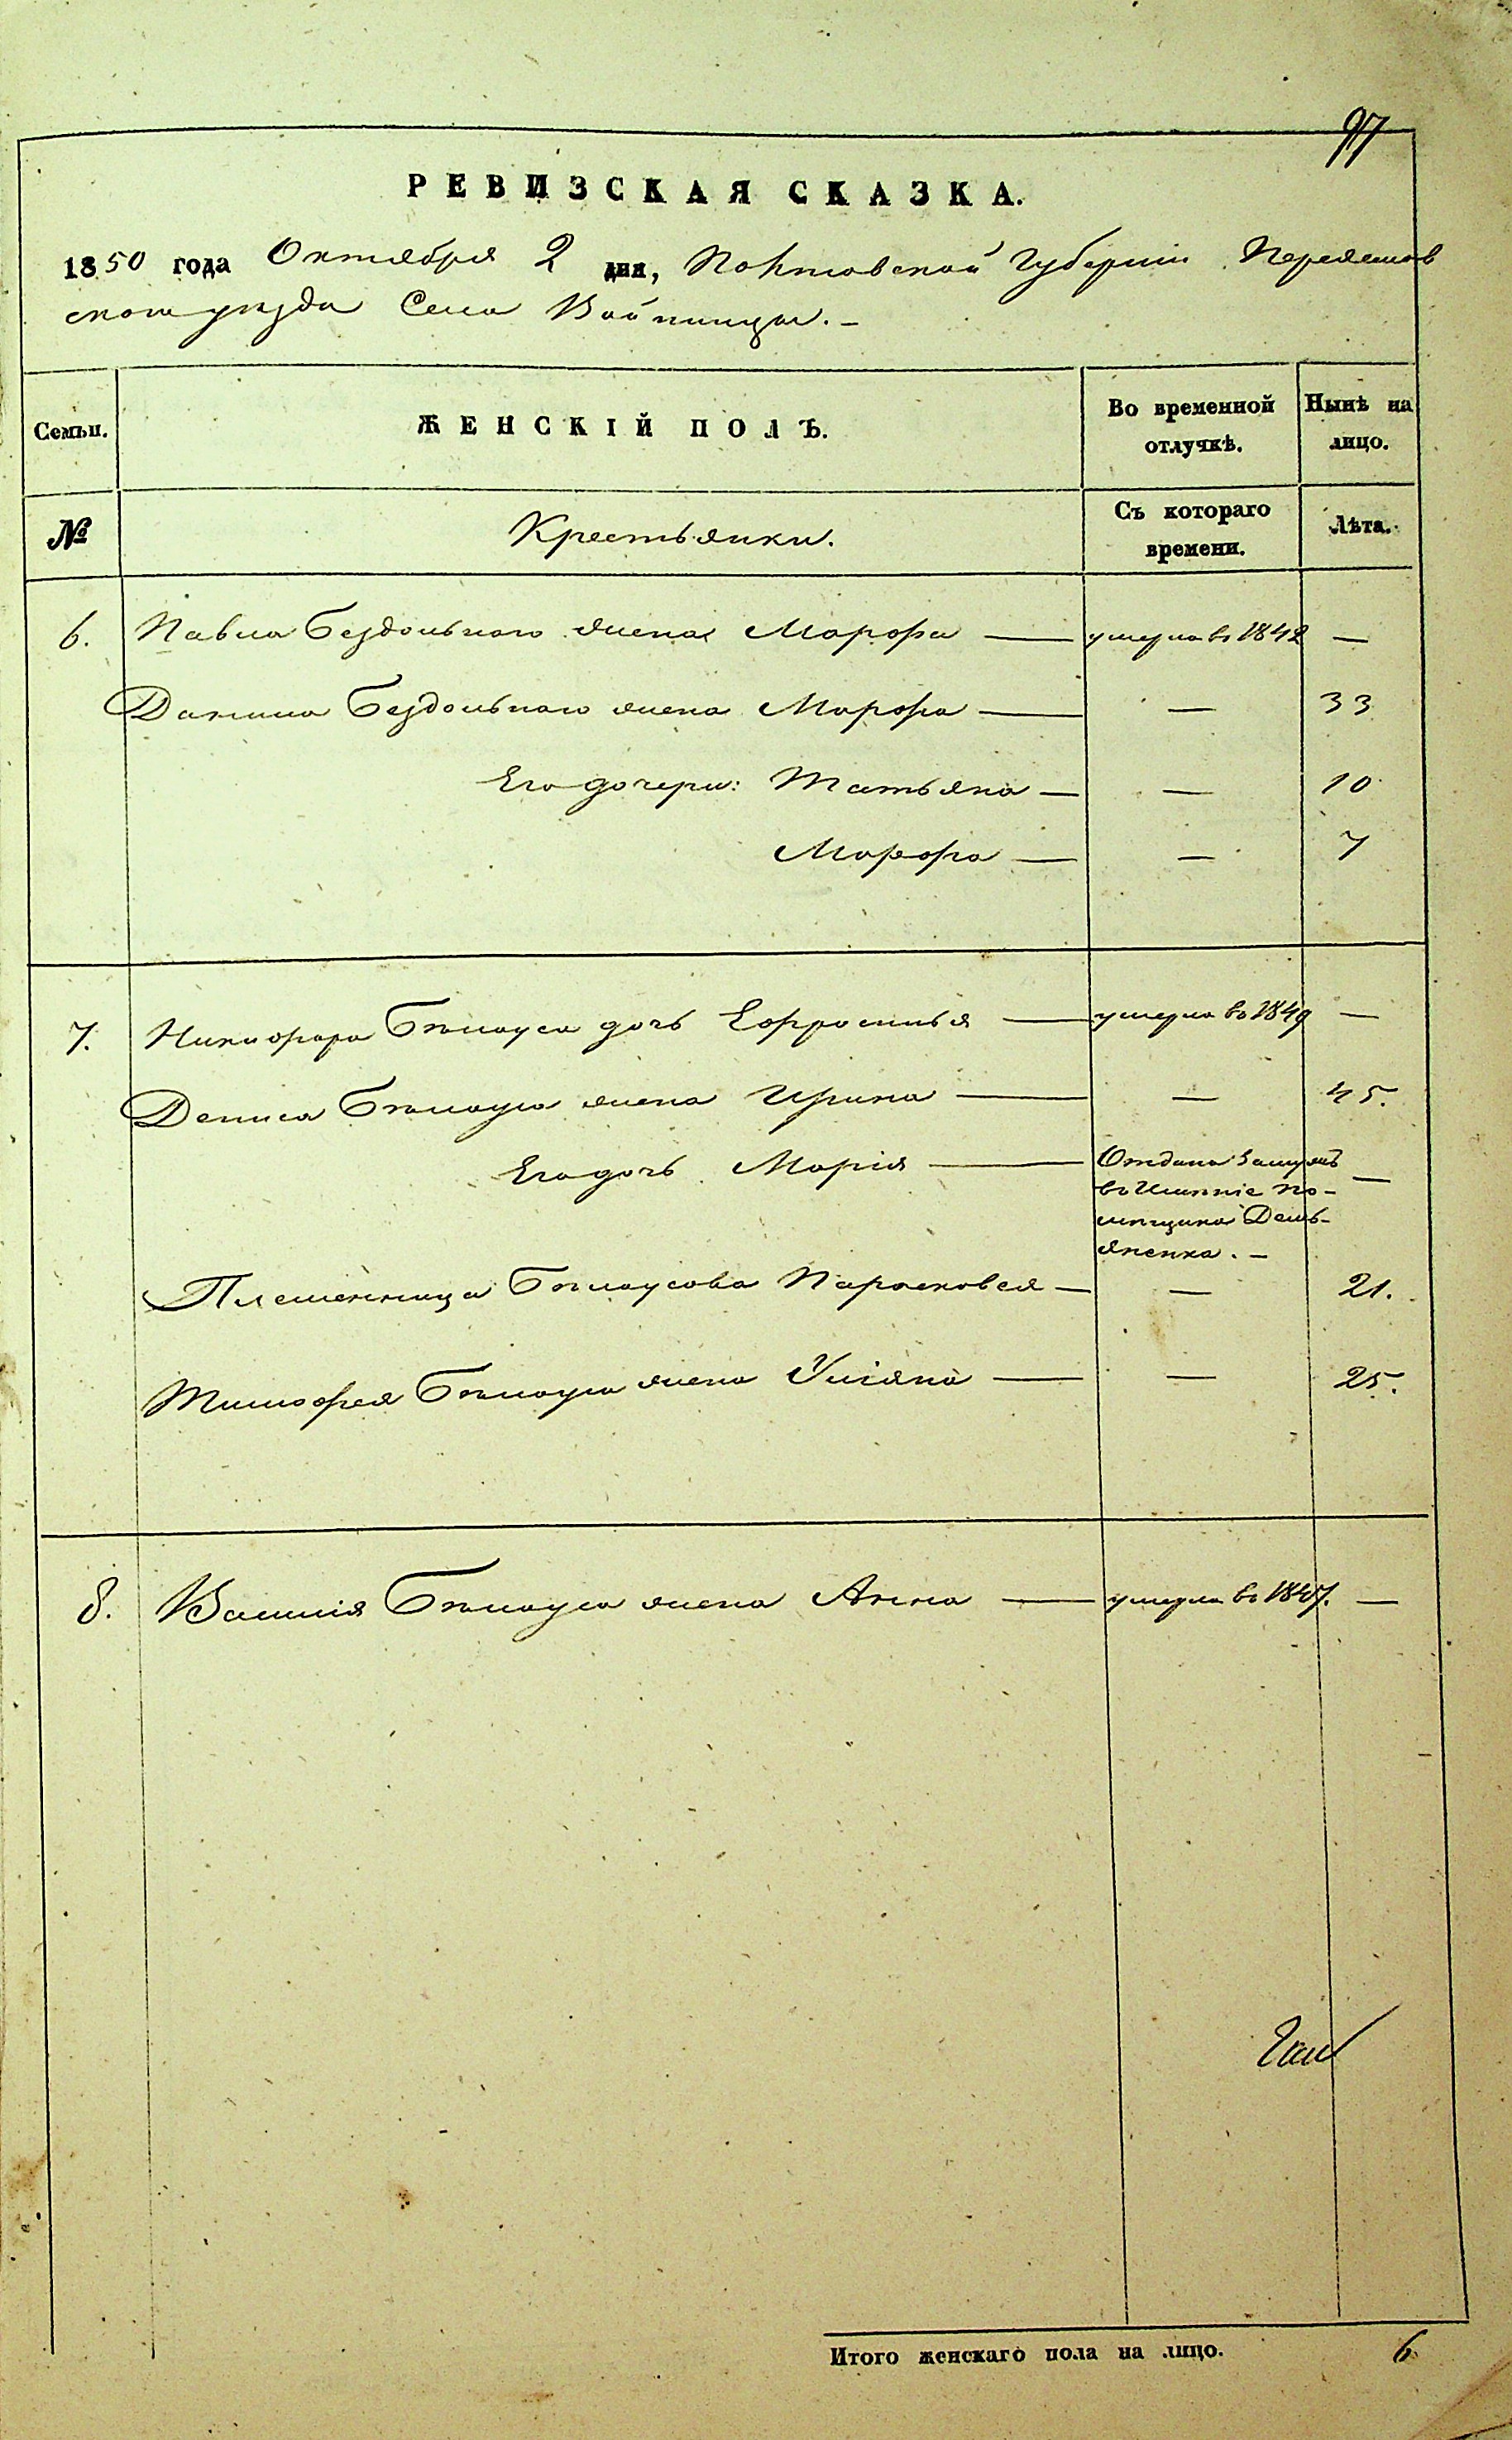 97
РЕВИЗСКАЯ СКАЗКА.
1850 года Октября 2 дня, Полтавской Губерніи Переяслов
скаго уезда Села Войтовцы. –
Семьи. ЖЕНСКІЙ ПОЛЪ. Во временной отлучкѣ. Нынѣ на лицо.
№ Крестьянки. Съ котораго времени. Лѣта.
6. Павла Бездольнаго жена Марфа — умерла въ 1842 —
Данила Бездольнаго жена Марфа — — 33
Его дочери: Татьяна — — 10
Марфа — — 7
7. Никифора Бѣлауса дочь Ефросинья — умерла въ 1849 —
Дениса Бѣлауса жена Ирина — — 45.
Его дочь Марія — Отдана Замужъ —
въ Имѣніе по-
мѣщика Демь-
яненка. –
Племенница Бѣлаусова Парасковея — — 21.
Тимофея Бѣлауса жена Уліяна — — 25.
8. Василія Бѣлауса жена Анна — умерла въ 1847. —
Итого женскаго пола на лицо. 6